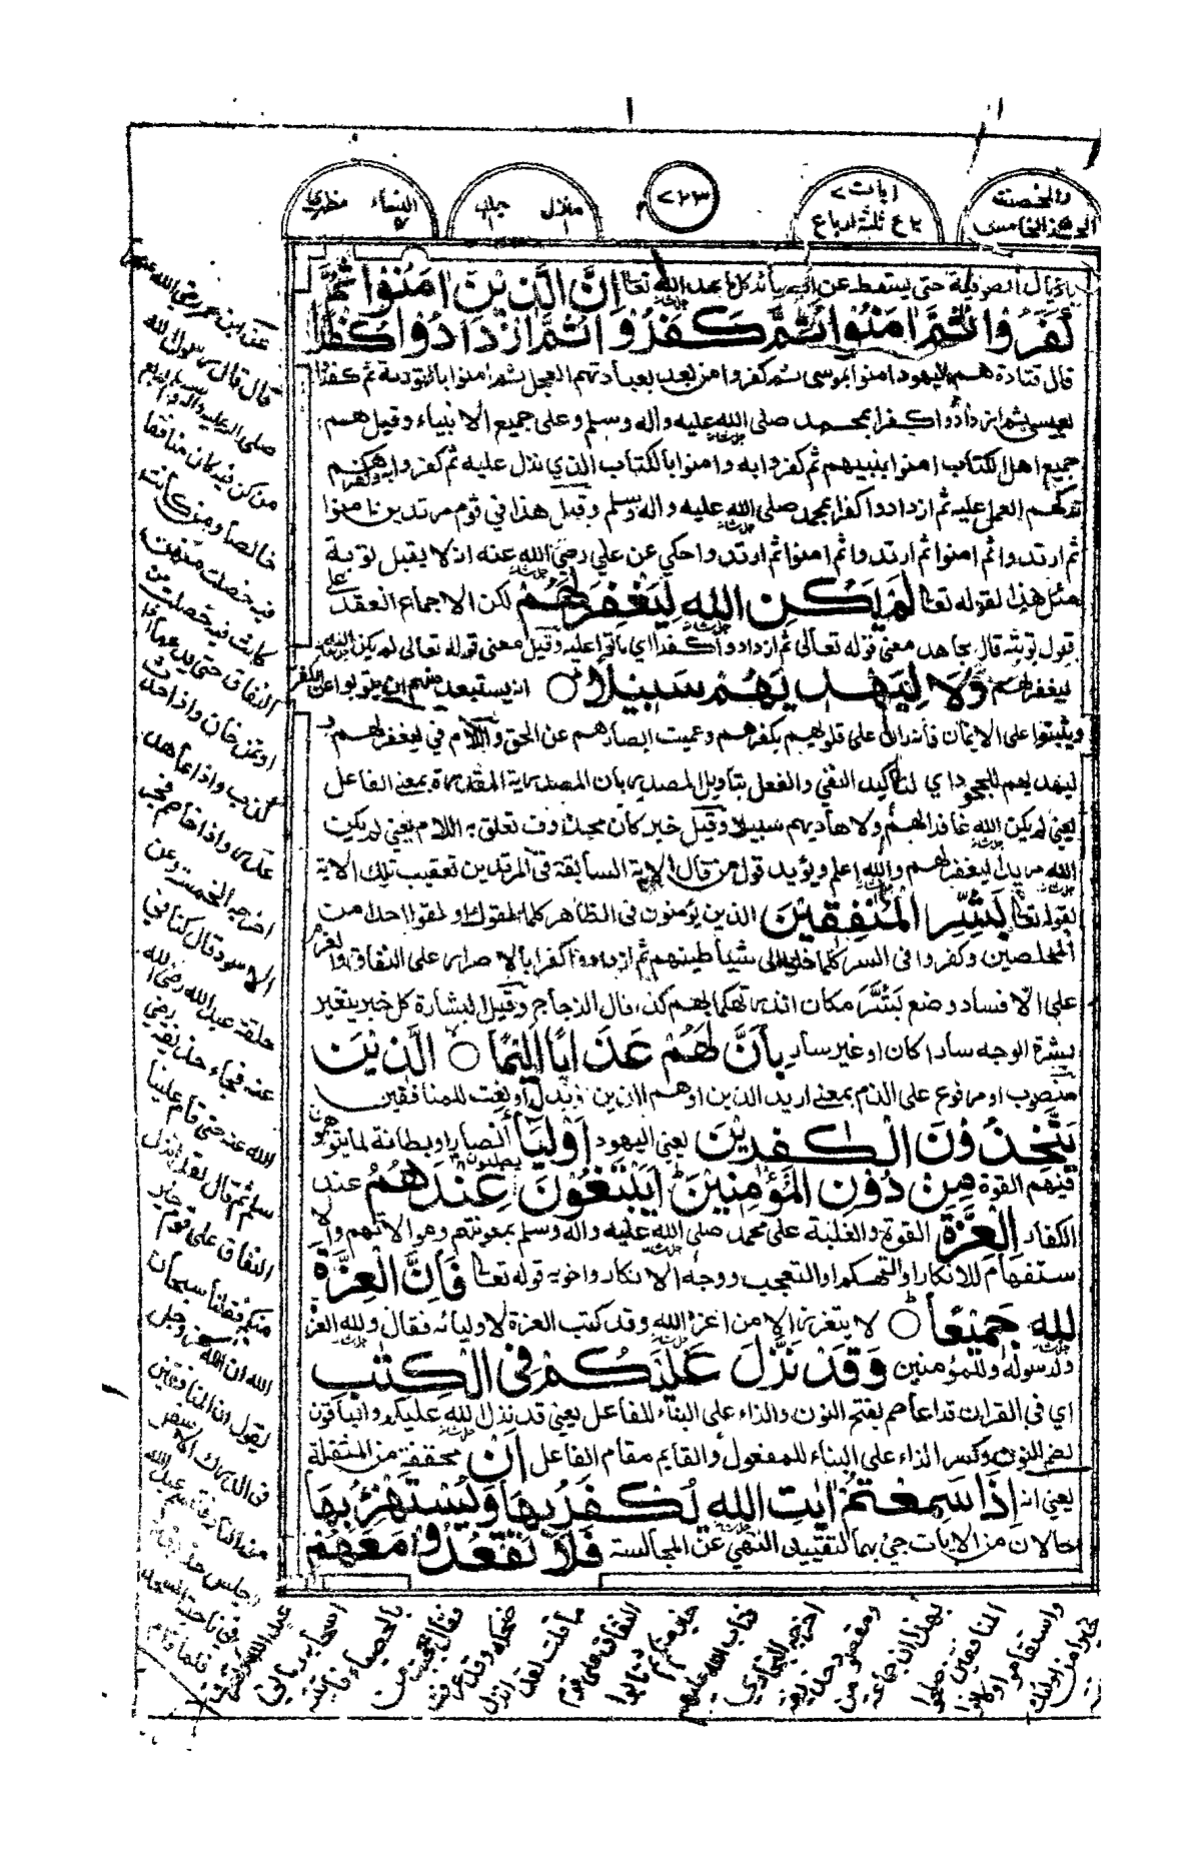 والمحصنت
الجزء الخامس
ايات
ع ثلثة ارباع
٧٢٣
منزل
جلد
النساء
مظهري
حتى يسقط عن تعالى اِنَّ الَّذِيْنَ اٰمَنُوْا ثُمَّ
كَفَرُوْا ثُمَّ اٰمَنُوْا ثُمَّ كَفَرُوْا ثُمَّ ازْدَادُوْا كُفْرًا
قال قتادة هم اليهود امنوا بموسى ثم كفروا من بعد بعبادتهم العجل ثم امنوا بالتورية ثم كفروا
بعيسى ثم ازدادوا كفرا بمحمد صلى الله عليه واله وسلم وعلى جميع الانبياء وقيل هم
جميع اهل الكتاب امنوا بنبيهم ثم كفروا به وامنوا بالكتاب الذي نزل عليه ثم كفروا به وكفرهم
تركهم العمل عليه ثم ازدادوا كفرا بمحمد صلى الله عليه واله وسلم وقيل هذا في قوم مرتدين امنوا
ثم ارتدوا ثم امنوا ثم ارتدوا ثم امنوا ثم ارتدوا حكي عن علي رضي الله عنه انه لا يقبل توبة
مثل هذا لقوله تعالى لَمْ يَكُنِ اللهُ لِيَغْفِرَ لَهُمْ لكن الاجماع انعقد على
قبول توبته قال مجاهد معنى قوله تعالى ثم ازدادوا كفرا اي ماتوا عليه وقيل معنى قوله تعالى لم يكن الله
ليغفر لهم وَلَا لِيَهْدِيَهُمْ سَبِيْلًا ۝ انه يستبعد منهم ان يتوبوا عن الكفر
ويثبتوا على الايمان فان الله على قلوبهم بكفرهم وعميت ابصارهم عن الحق واللام في ليغفر لهم و
ليهديهم للجحود اي لتاكيد النفي والفعل بتاويل المصدر بان المصدرية المقدرة بمعنى الفاعل
يعني لم يكن الله غافرا لهم ولا هاديهم سبيلا وقيل خبر كان محذوف تعلق به اللام يعني لم يكن
الله مريدا ليغفر لهم والله اعلم ويؤيد قول من قال الاية السابقة في المرتدين تعقيب تلك الاية
بقوله تعالى بَشِّرِ الْمُنٰفِقِيْنَ الذين يؤمنون في الظاهر كلما لقوك او لقوا احدا من
المخلصين وكفروا في السر كلما خلوا الى شياطينهم ثم ازدادوا كفرا بالاصرار على النفاق
على الافساد وضع بَشِّرْ مكان انذر تهكما بهم كذا قال الزجاج وقيل البشارة كل خبر يتغير
بشرة الوجه سارا كان او غير سار بِاَنَّ لَهُمْ عَذَابًا اَلِيْمًا ۝ الَّذِيْنَ
منصوب او مرفوع على الذم بمعنى اريد الذين او هم الذين وبدل او نعت للمنافقين
يَتَّخِذُوْنَ الْكٰفِرِيْنَ يعني اليهود اَوْلِيَآءَ انصارا وبطانة لما يتوهمون
فيهم القوة مِنْ دُوْنِ الْمُؤْمِنِيْنَ اَيَبْتَغُوْنَ يطلبون عِنْدَهُمُ عند
الكفار الْعِزَّةَ القوة والغلبة على محمد صلى الله عليه واله وسلم بمعونتهم
ستفهام للانكار او التهكم او التعجب ووجه الانكار قوله تعالى فَاِنَّ الْعِزَّةَ
لِلّٰهِ جَمِيْعًا ۝ لا يتعزز الا من اعز الله وقد كتب العزة لاوليائه فقال ولله العزة
ولرسوله وللمؤمنين وَقَدْ نَزَّلَ عَلَيْكُمْ فِي الْكِتٰبِ
اي في القران قرا عاصم بفتح النون والزاء على البناء للفاعل يعني قد نزل الله عليكم والباقون
بضم النون وكسر الزاء على البناء للمفعول والقايم مقام الفاعل اَنْ مخففة من المثقلة
يعني انه اِذَا سَمِعْتُمْ اٰيٰتِ اللهِ يُكْفَرُ بِهَا وَيُسْتَهْزَاُ بِهَا
حالان من الايات جيء بهما لتقييد النهي عن المجالسة فَلَا تَقْعُدُوْا مَعَهُمْ
عن ابن عمر رضي الله عنهم
قال قال رسول الله
صلى الله عليه واله وسلم اربع
من كن فيه كان منافقا
خالصا ومن كانت
فيه خصلة منهن
كانت فيه خصلة من
النفاق حتى يدعها اذا
اؤتمن خان واذا حدث
كذب واذا عاهد
غدر واذا خاصم فجر
اخرجه الخمسة وعن
الاسود قال كنا في
حلقة عبد الله رضي الله
عنه فجاء حذيفة رضي
الله عنه حتى قام علينا
سلم ثم قال لقد انزل
النفاق على قوم خير
منكم فقلنا سبحان
الله ان الله عز وجل
يقول ان المنافقين
في الدرك الاسفل
من النار عبد الله
وجلس حذيفة
في ناحية المسجد
فلما قام
عبد الله
اصحابه
بالحصباء فاتيته
فقال عجبت من
ضحكه وقد عرف
ما قلت لقد انزل
النفاق على قوم
خير منكم ثم تابوا
فتاب الله عليهم
اخرجه البخاري
ومقصود حذيفة
بهذا ان جماعة من
المنافقين صلحوا
واستقاموا